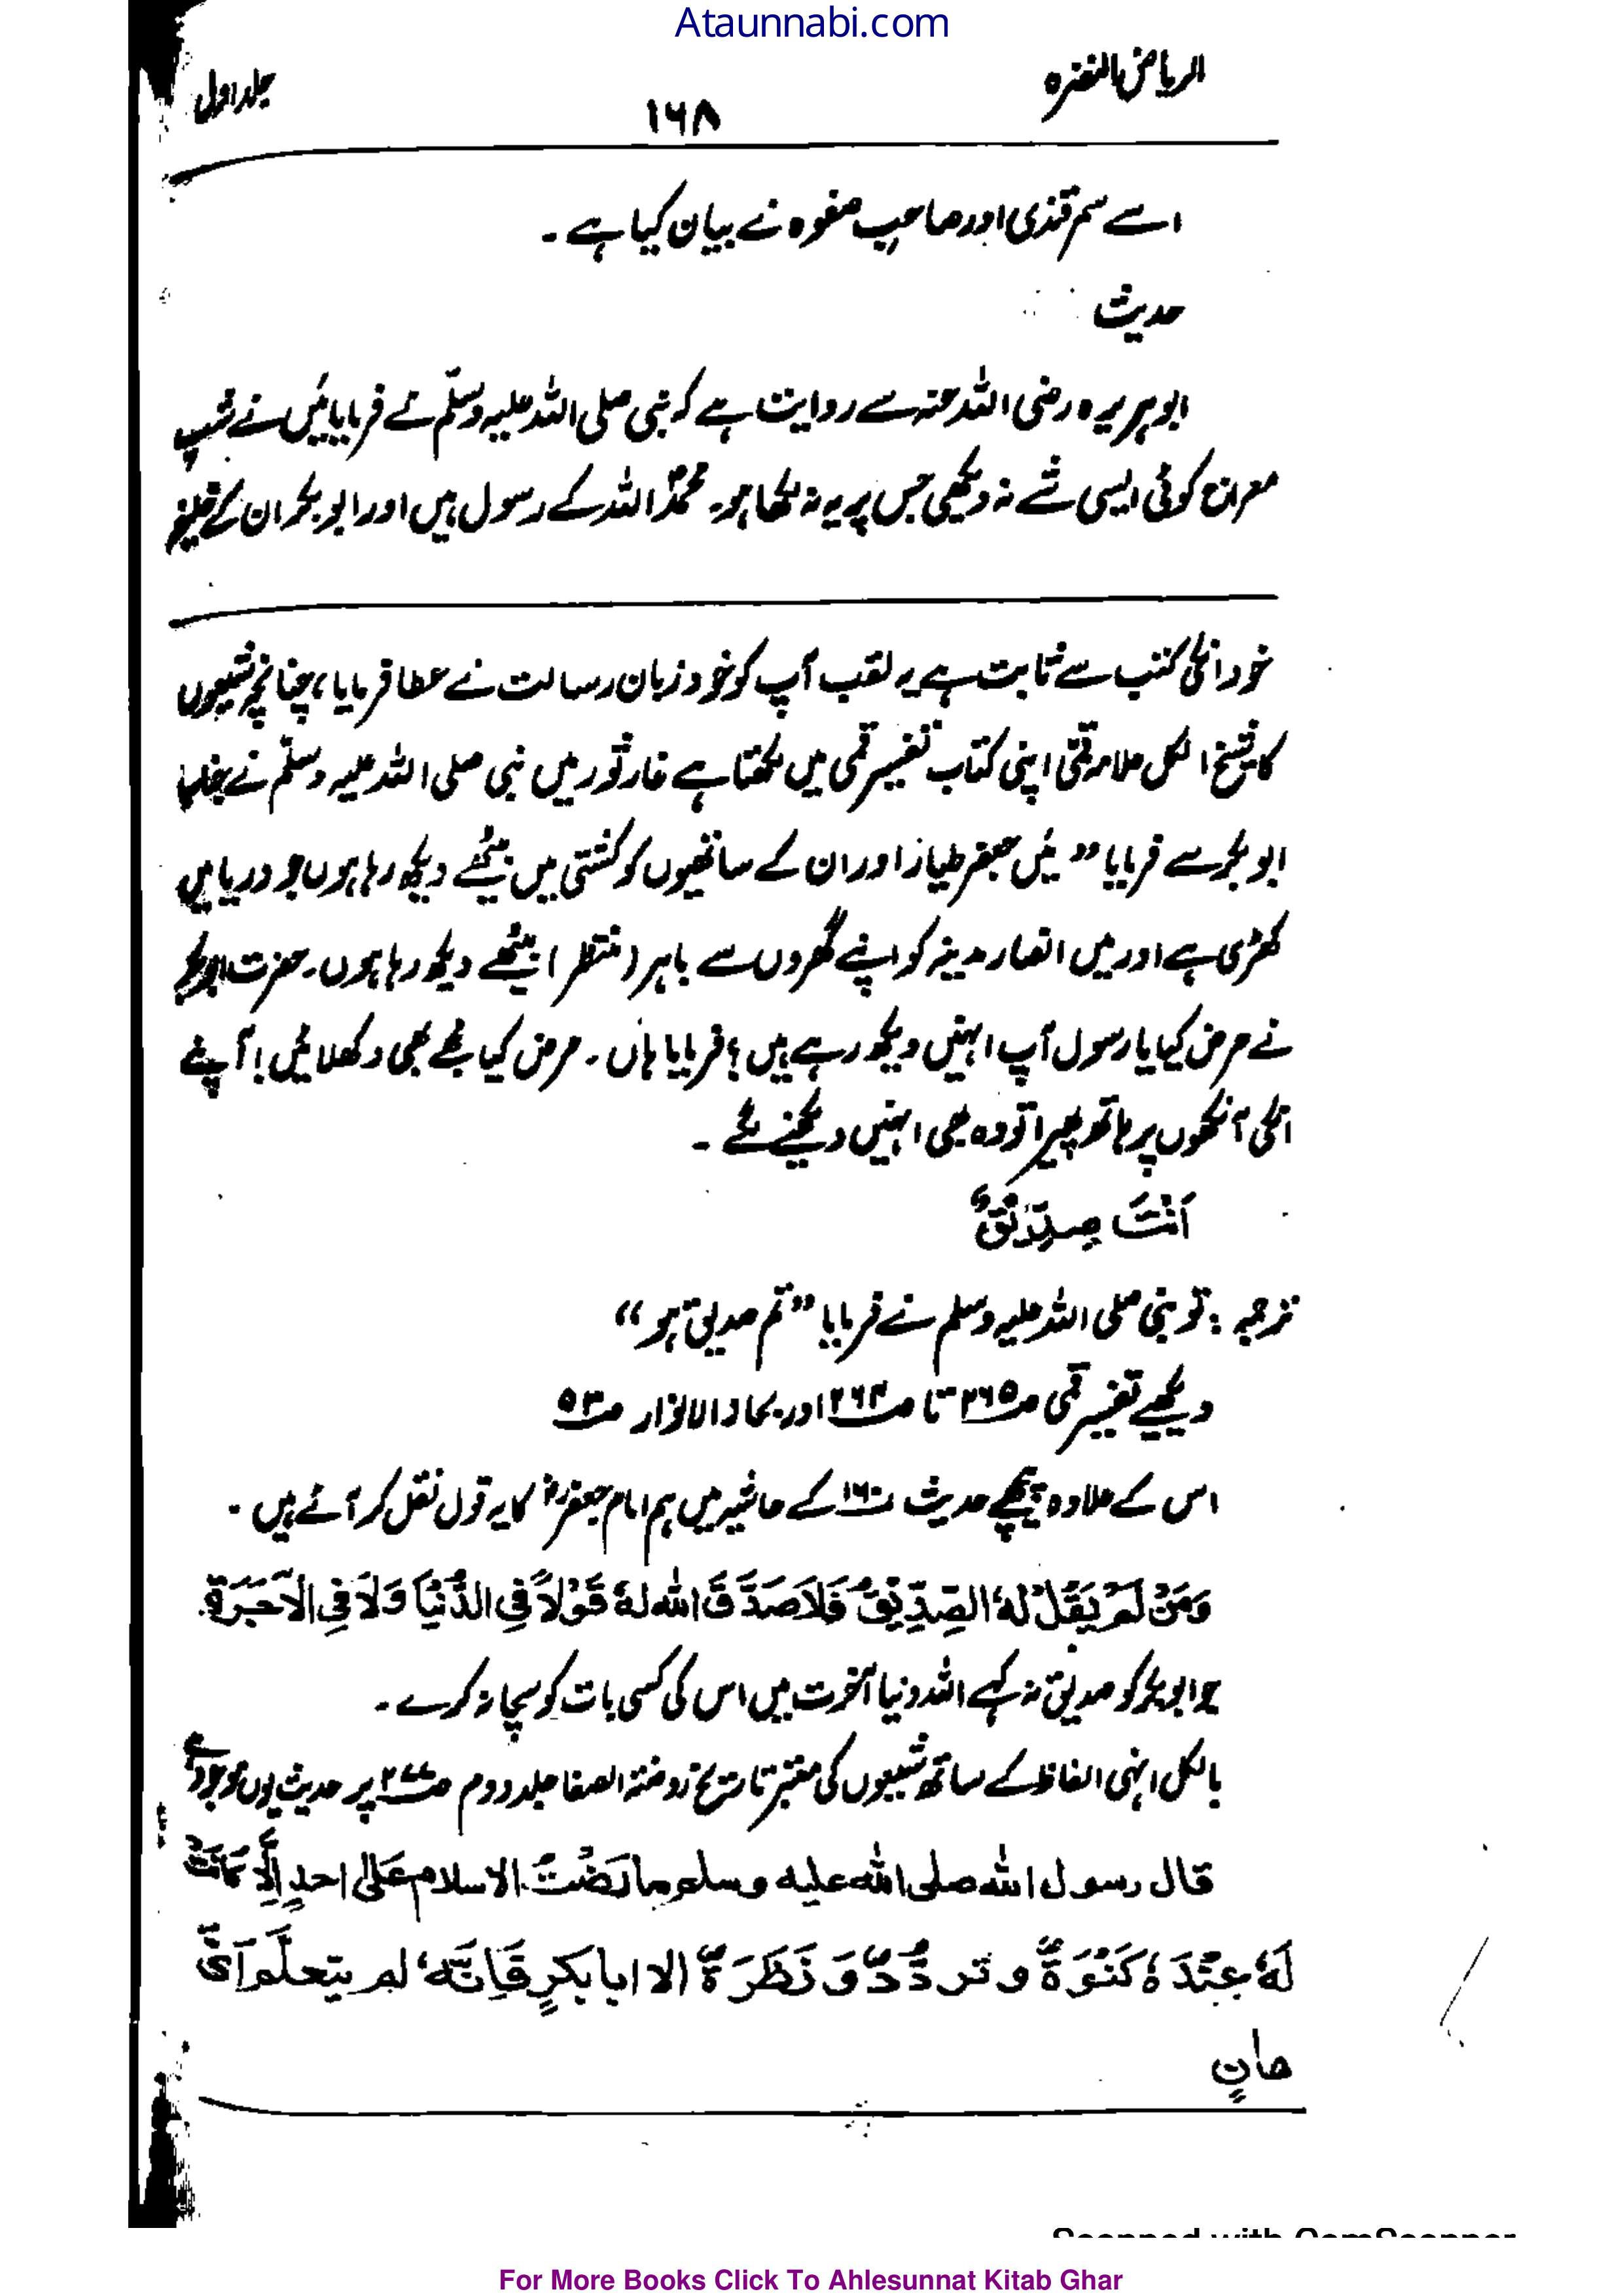 Ataunnabi.com
الریاض النضرہ
۱۶۸
جلد اول
اسے سمرقندی اور صاحبِ صفوہ نے بیان کیا ہے ۔
حدیث
ابو ہریرہ رضی اللہ عنہ سے روایت ہے کہ نبی صلی اللہ علیہ وسلّم نے فرمایا میں نے شبِ
معراج کوئی ایسی شے نہ دیکھی جس پر یہ نہ لکھا ہو۔ محمدؐ اللہ کے رسول ہیں اور ابوبکر ان کے خلیفہ
خود انکی کتب سے ثابت ہے یہ لقب آپ کو خود زبان رسالت نے عطا فرمایا، چنانچہ شیعوں
کا شیخ الکل علامہ قمی اپنی کتاب تفسیر قمی میں لکھتا ہے غار ثور میں نبی صلی اللہ علیہ وسلّم نے جناب
ابوبکر سے فرمایا ” میں جعفر طیار اور ان کے ساتھیوں کو کشتی میں بیٹھے دیکھ رہا ہوں جو دریا میں
کھڑی ہے اور میں انصار مدینہ کو اپنے گھروں سے باہر (منتظر) بیٹھے دیکھ رہا ہوں۔ حضرت ابوبکر
نے عرض کیا یا رسول آپ انہیں دیکھ رہے ہیں؟ فرمایا ہاں ۔ عرض کیا مجھے بھی دکھلائیں! آپ نے
انکی آنکھوں پر ہاتھ پھیرا تو وہ بھی انہیں دیکھنے لگے ۔
اَنْتَ صِدِّيْقٌ
ترجمہ : تو نبی صلی اللہ علیہ وسلم نے فرمایا ” تم صدیق ہو “
دیکھیے تفسیر قمی ص۲۶۵ تا ص۲۶۴ اور بحار الانوار ص۵۳
اس کے علاوہ پیچھے حدیث ۱۶۰ کے حاشیہ میں ہم امام جعفرؓ کا یہ قول نقل کر آئے ہیں ۔
وَمَنْ لَمْ يَقُلْ لَهُ الصِّدِّيْقُ فَلَا صَدَّقَ اللهُ لَهُ قَوْلاً فِي الدُّنْيَا وَلَا فِي الْآخِرَةِ
جو ابوبکر کو صدیق نہ کہے اللہ دنیا آخرت میں اس کی کسی بات کو سچا نہ کرے ۔
بالکل انہی الفاظ کے ساتھ شیعوں کی معتبر تاریخ روضۃ الصفا جلد دوم ص۲۷۷ پر حدیث یوں موجود ہے
قال رسول الله صلى الله عليه وسلم ما رَضْتُ الاسلام عَلیٰ احدٍ اِلَّا كَانَتْ
لَهٗ عِنْدَهٗ كَنْوَةٌ و تردُّدٌ وَ نَظَرَةٌ الا ابا بكرٍ فَاِنَّهٗ لم يتعلّم اَیَّ
مانٍ
For More Books Click To Ahlesunnat Kitab Ghar